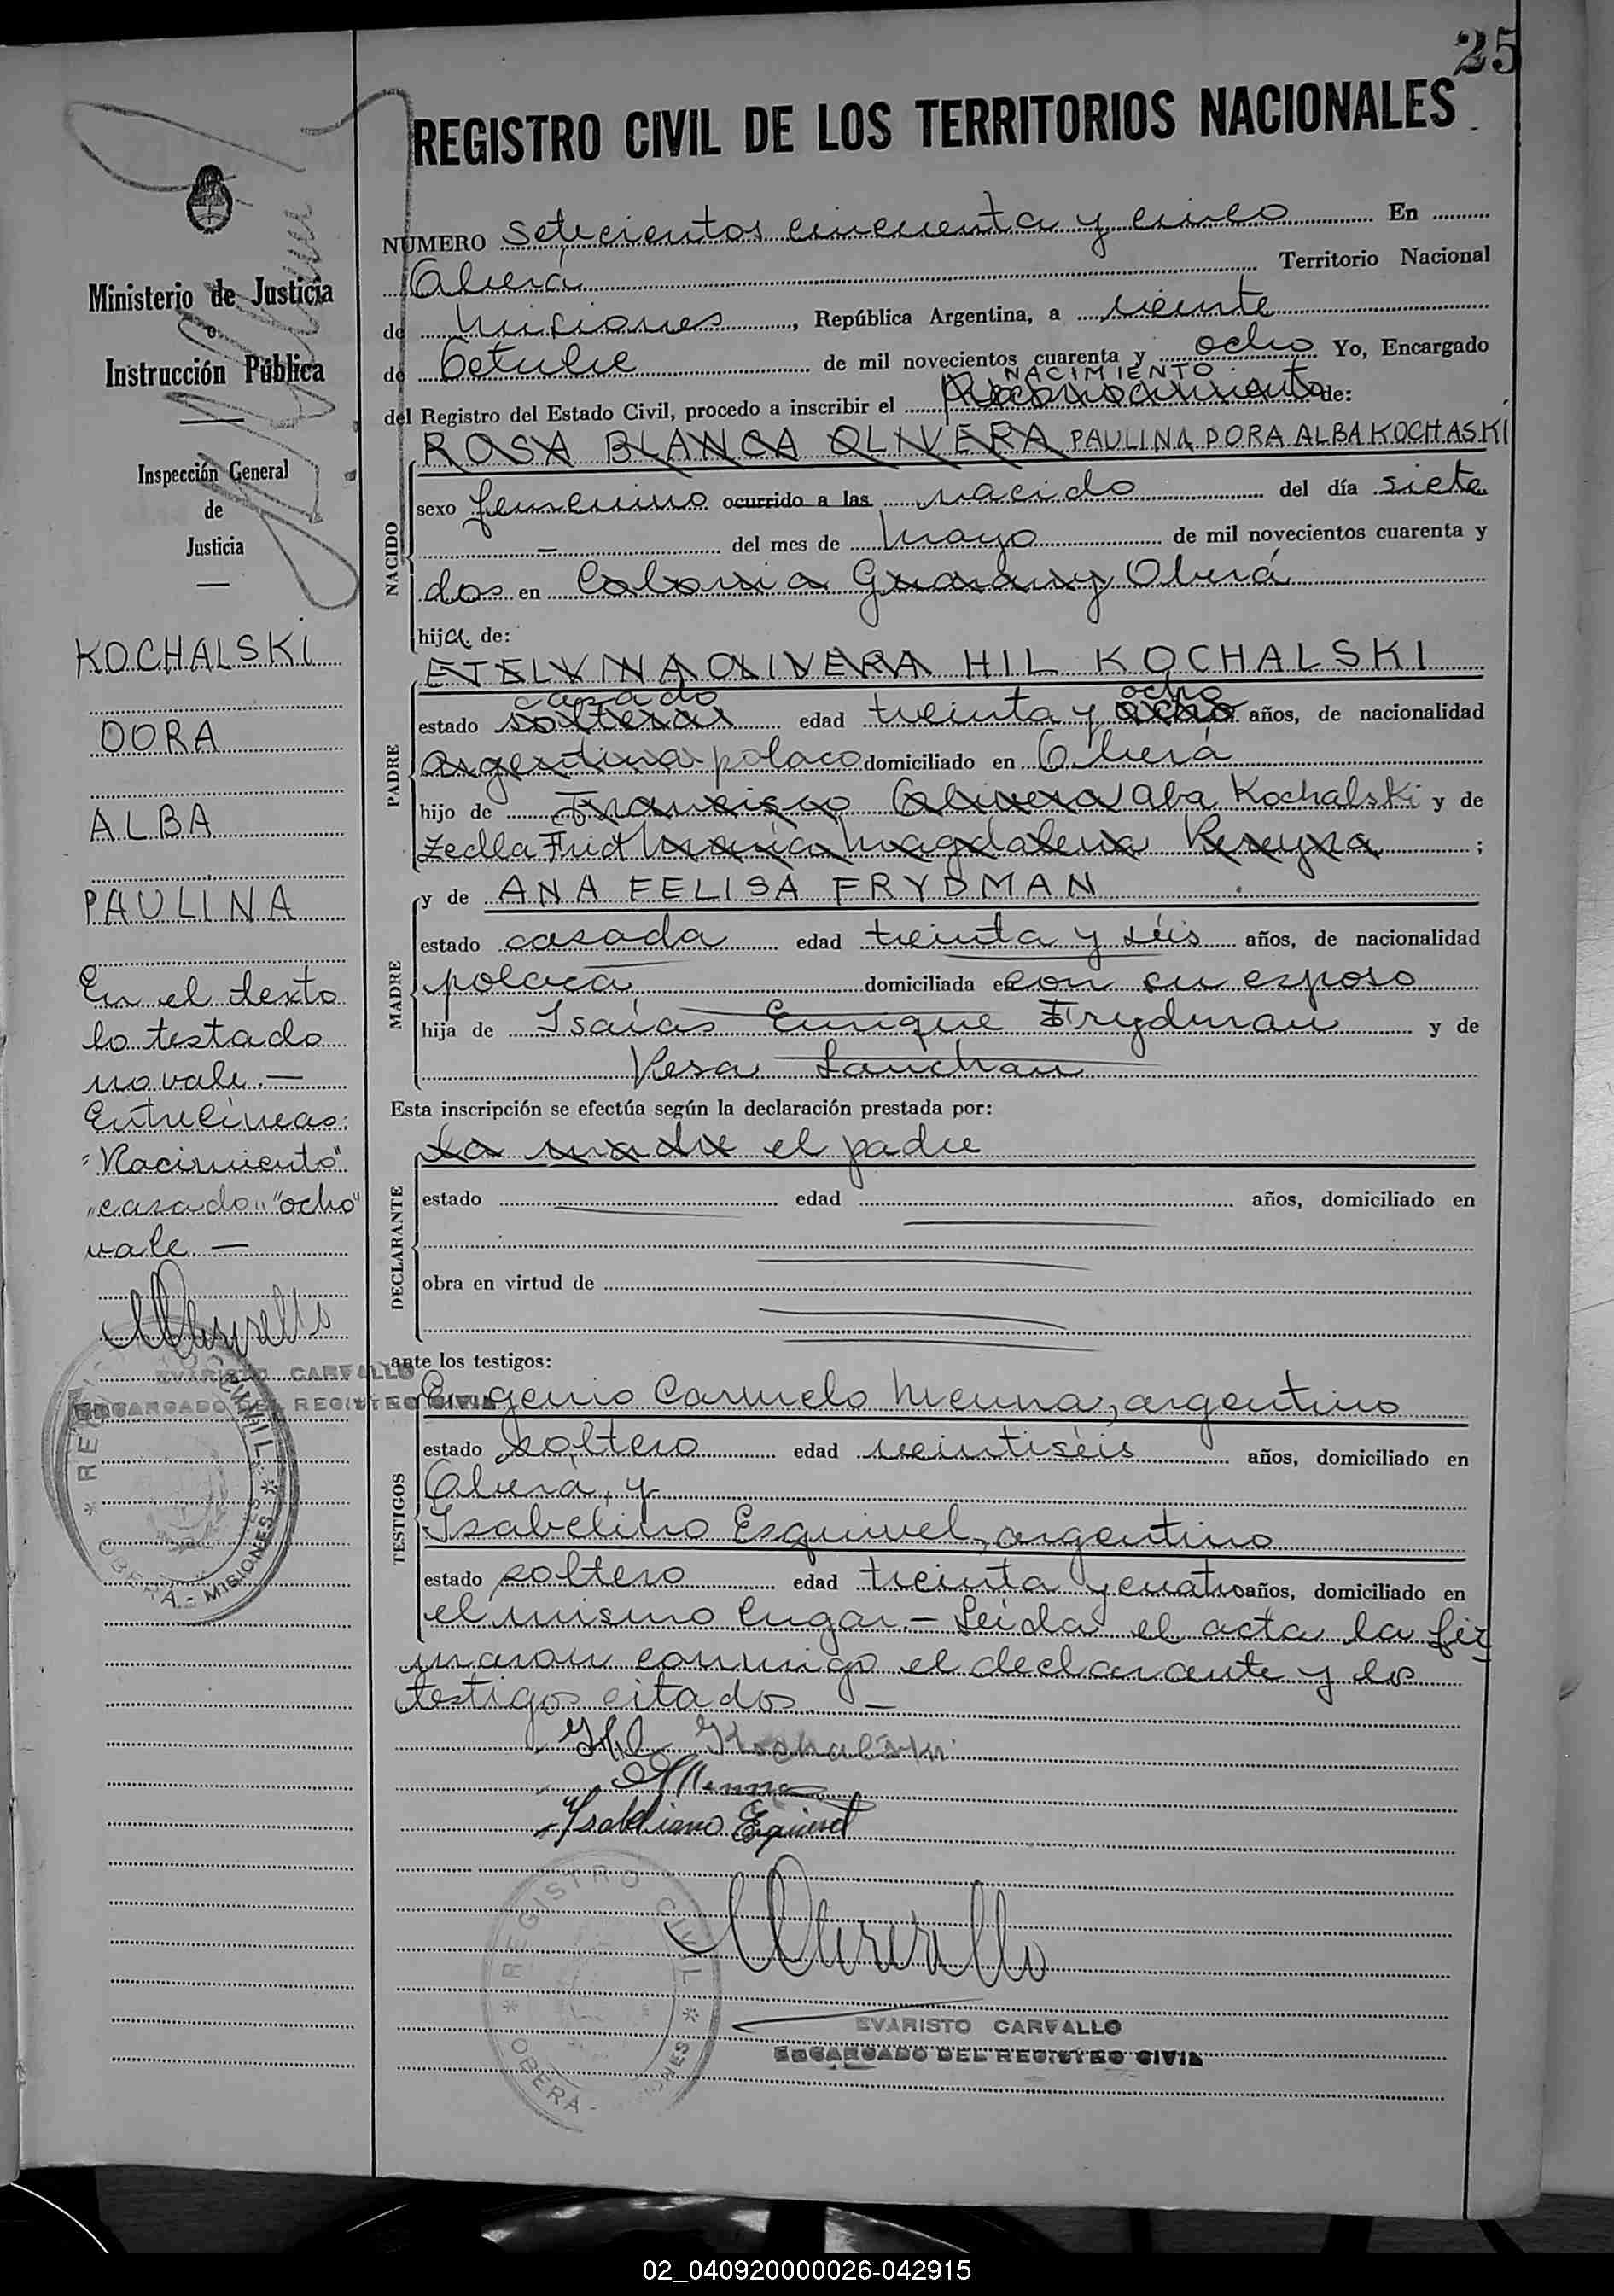 25
REGISTRO CIVIL DE LOS TERRITORIOS NACIONALES
Ministerio de Justicia
e
Instrucción Pública
Inspección General
de
Justicia
KOCHALSKI
DORA
ALBA
PAULINA
En el texto
lo testado
no vale.—
Entrelíneas:
"Nacimiento"
"casado" "ocho"
vale —
EVARISTO CARVALLO
ENCARGADO DEL REGISTRO CIVIL
REGISTRO CIVIL
OBERA - MISIONES
NUMERO setecientos cincuenta y cinco En
Oberá Territorio Nacional
de Misiones, República Argentina, a veinte
de Octubre de mil novecientos cuarenta y ocho Yo, Encargado
NACIMIENTO
del Registro del Estado Civil, procedo a inscribir el Reconocimiento de:
ROSA BLANCA OLIVERA PAULINA DORA ALBA KOCHASKI
NACIDO
sexo femenino ocurrido a las nacido del día siete
— del mes de Mayo de mil novecientos cuarenta y
dos en Colonia Guarany Oberá
hija de:
PADRE
ETELVINA OLIVERA HIL KOCHALSKI
casado ocho
estado soltera edad treinta y ocho años, de nacionalidad
argentina polaco domiciliado en Oberá
hijo de Francisco Olivera Aba Kochalski y de
Zedlla Frid María Magdalena Pereyra ;
MADRE
y de ANA FELISA FRYDMAN
estado casada edad treinta y séis años, de nacionalidad
polaca domiciliada en con su esposo
hija de Isaías Enrique Frydman y de
Resa Lanchan
Esta inscripción se efectúa según la declaración prestada por:
DECLARANTE
la madre el padre
estado edad años, domiciliado en
obra en virtud de
ante los testigos:
TESTIGOS
Eugenio Carmelo Menna, argentino
estado soltero edad veintiséis años, domiciliado en
Oberá, y
Isabelino Esquivel, argentino
estado soltero edad treinta y cuatro años, domiciliado en
el mismo lugar.— Leida el acta la fir
maron conmigo el declarante y los
testigos citados —
Hil Kochalski
Menna
Isabeliano Equivel
REGISTRO CIVIL
OBERA - MISIONES
EVARISTO CARVALLO
ENCARGADO DEL REGISTRO CIVIL
02_040920000026-042915